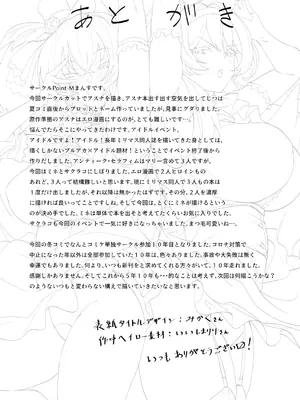 あとがき
サークルPoint-Mまんすです。
今回サークルカットでアスナを描き、アスナ本出す出す空気を出してじつは
夏コミ直後からプロットとネーム作っていましたが、見事にグダりました。
原作準拠のアスナはエロ漫画にするのが、とても難しいですね…。
悩んでたらそこにやってきたわけです。アイドルイベント。
アイドルですよ!アイドル!長年ミリマス同人誌を描いてきた身としては、
描くしかないブルアカ×アイドル題材!ということでイベント終了後から
作りだしました。アンティーク・セラフィムはマリー含めて3人ですが、
今回はミネとサクラコにしぼりました。エロ漫画で2人ヒロインもの
あれど、3人って結構難しいと思います。現にミリマス同人で3人もの本は
1度だけ出しましたが、それ以後は無かったはずです。その分、2人を濃厚
に描ければ良いってことでしたし。そして今回は、とくにミネが描けるという
のが決め手でした。ミネは単体で本を出そと考えてたくらいお気に入りでした。
サクラコも今回のイベントで一気に好きになっちゃいました。まつ毛可愛いね…。
今回の冬コミでなんとコミケ単独サークル参加10年目となりました。コロナ対策で
中止になった年以外は全部参加していた10年は、色々ありました。事故や大失敗は無く
幸運でもありました。何より、いつも新刊をと求めてくれる方々がいて、10年走れました。
感謝しかありません。そしてこれから5年10年も…的なことは考えず、次回は何描こうかな?
のようないつもと変わらない構えで描いていきたいなと思います。
表紙タイトルデザイン:みかくさん
いつもありがとうございます!